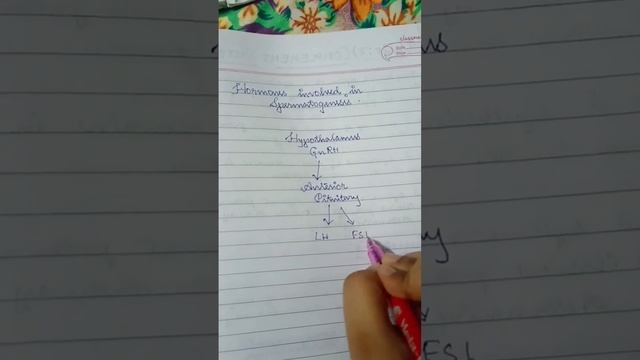 Hormones involved in
Spermatogenesis.
Hypothalamus
GnRH
Anterior
Pituitary
LH FSH